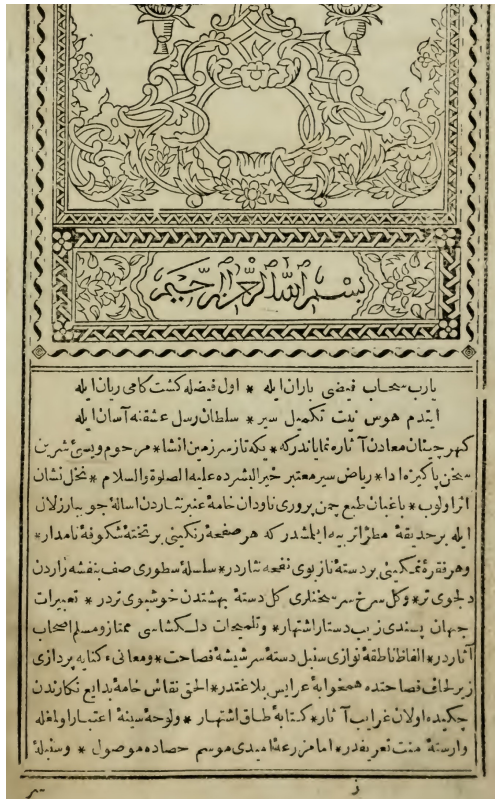 بسم الله الرحمن الرحيم
يارب سحاب فيضى باران ايله * اول فيضله كشت كامى ريان ايله
ايتدم هوس نيت تكميل سير * سلطان رسل عشقنه آسان ايله
كهرچينان معادن آثاره نماياندركه * يكه تاز سرزمين انشا * مرحوم ويسئ شرين
سخن پاكيزه ادا * رياض سير معتبر خير البشرده عليه الصلوة والسلام * نخل نشان
اثر اولوب * باغبان طبع چمن پرورى ناودان خامۀ عنبر نثاردن اسالۀ جويبار زلال
ايله برحديقۀ مطرا تربيه ايلمشدركه هر صفحۀ رنكينى برتختۀ شكوفۀ نامدار *
وهر فقرۀ نمكينى بردستۀ نازبوى نفحه نثاردر * سلسلۀ سطورى صف بنفشه زاردن
دلجوى تر * وكل سرخ سرسخنلرى كل دستۀ بهشتدن خوشبوى تردر * تعبيرات
جهان پسندى زيب دستار اشتهار * وتلميحات دلكشاسى ممتاز ومسلم اصحاب
آثاردر * الفاظ ناطقه نوازى سنبل دستۀ سر شيشۀ فصاحت * ومعانىء كنايه پردازى
زير لحاف فصاحتده همخوابۀ عرايس بلاغتدر * الحق نقاش خامۀ بدايع نكارندن
چكيده اولان غرايب آثار * كتابۀ طاق اشتهار * ولوحۀ سينۀ اعتبار اولمغله
وارستۀ منت تعريفدر * اما مزرعۀ اميدى موسم حصاده موصول * وسنبلۀ